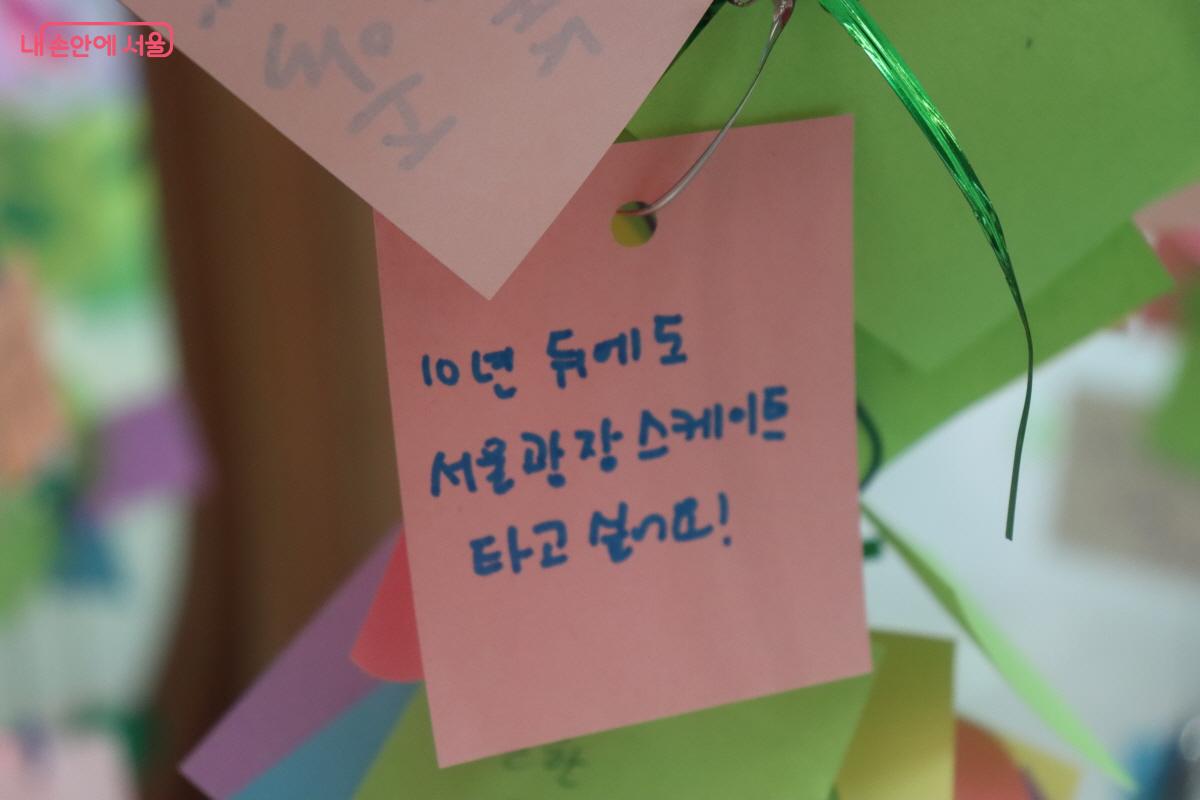 내 손안에 서울
10년 뒤에도
서울광장 스케이트
타고 싶어요!